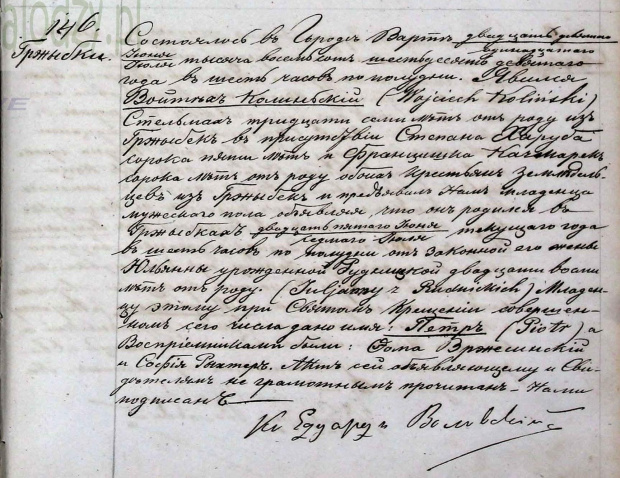 146.
Гржыбки.
Состоялось въ Городѣ Вартѣ двадцать девятаго Іюня
одиннадцатаго
Іюля тысяча восемьсотъ шестьдесятъ девятаго
года въ шесть часовъ по полудни. Явился
Войтѣхъ Колиньскій (Wojciech Koliński)
Стельмахъ тридцати семи лѣтъ отъ роду изъ
Гржыбекъ въ присутствіи Степана Харуба
сорока пяти лѣтъ и Францишка Качмарекъ
сорока лѣтъ отъ роду обоихъ крестьянъ земледѣль-
цевъ изъ Гржыбекъ и предъявилъ Намъ младенца
мужескаго пола объявляя, что онъ родился въ
Гржыбкахъ двадцать пятаго Іюня
седмаго Іюля текущаго года
въ шесть часовъ по полудни отъ законной его жены
Юльянны урожденной Рудницкой двадцати восьми
лѣтъ отъ роду. (Juljanny z Rudnickich) Младен-
цу этому при Святомъ Крещеніи совершен-
номъ сего числа дано имя: Петръ (Piotr) а
Воспріемниками были: Ѳома Вржесинскій
и Софія Рихтеръ. Актъ сей объявляющему и Сви-
дѣтелямъ не грамотнымъ прочитанъ – Нами
подписанъ
Кс Едуардъ